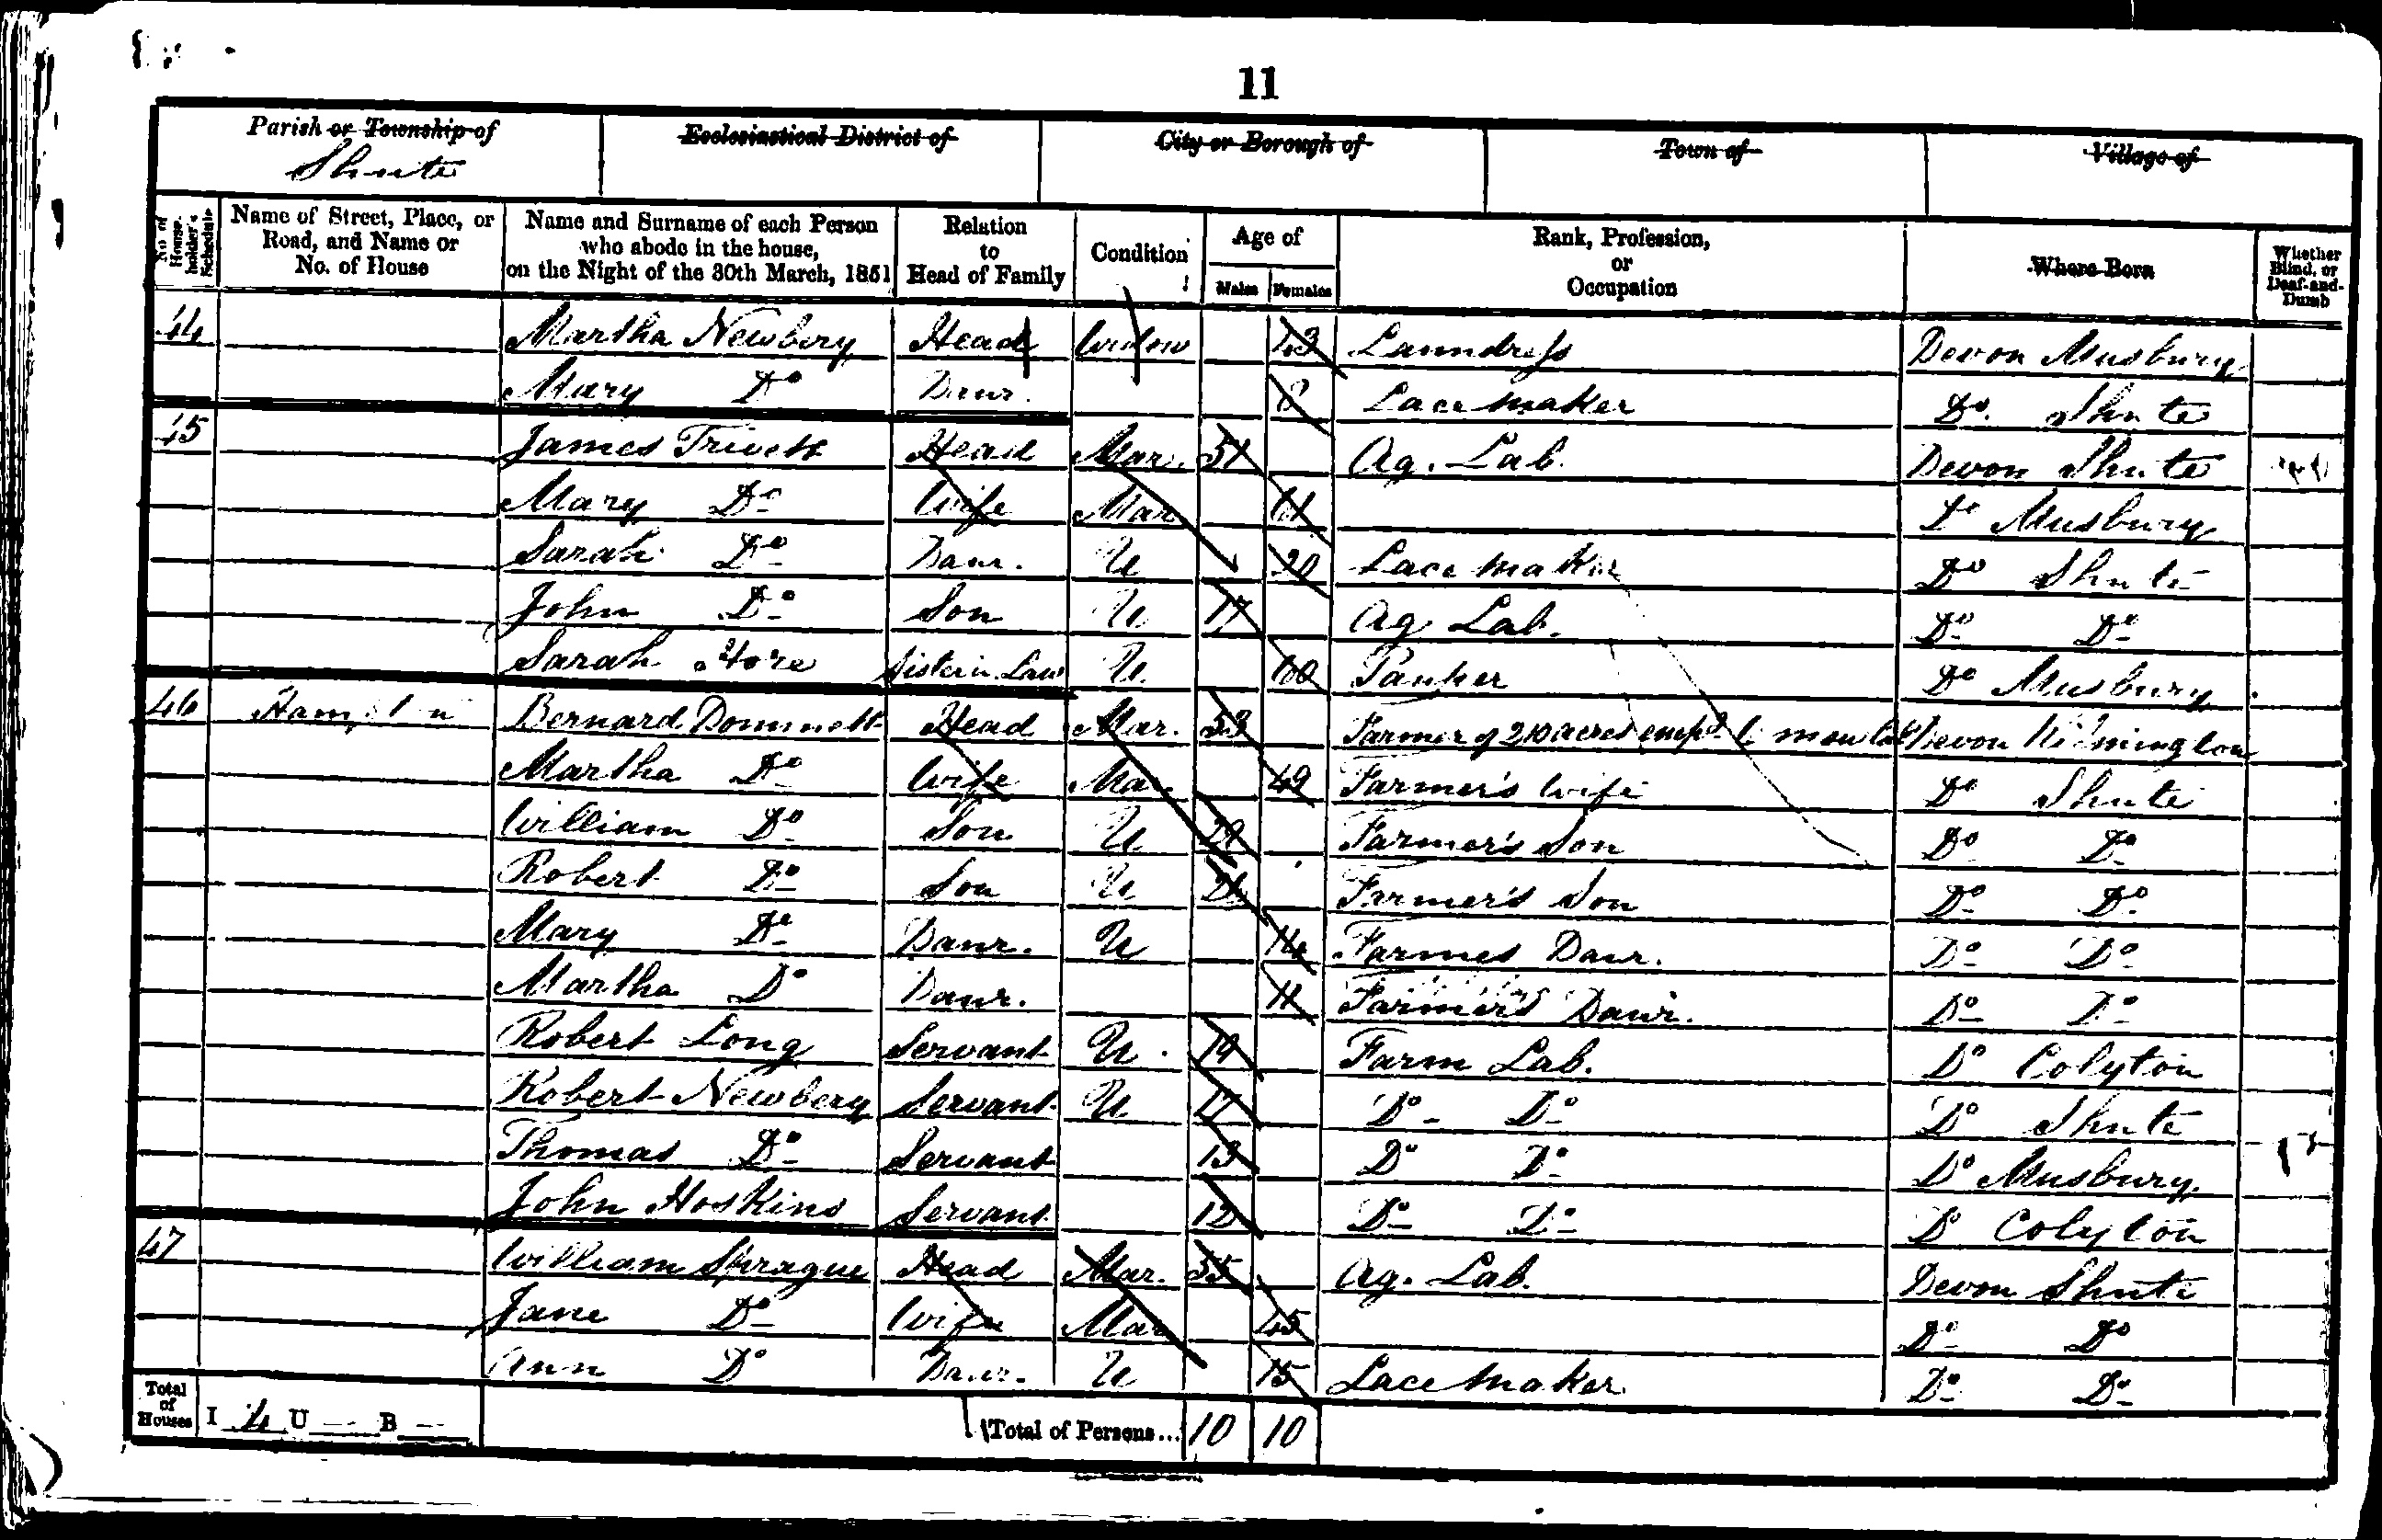 11
Parish or Township of Ecclesiastical District of City or Borough of Town of Village of
Shute
No. of House-holder's Schedule Name of Street, Place, or Road, and Name or No. of House Name and Surname of each Person who abode in the house, on the Night of the 30th March, 1851 Relation to Head of Family Condition Age of Males Females Rank, Profession, or Occupation Where Born Whether Blind, or Deaf-and-Dumb
44 Martha Newbery Head Widow 43 Laundress Devon Musbury
Mary Do Daur. 8 Lace Maker Do. Shute
45 James Trivett Head Mar. 51 Ag. Lab. Devon Shute
Mary Do Wife Mar 61 Do Musbury
Sarah Do Daur. U 20 Lace Maker Do Shute
John Do Son U 17 Ag Lab. Do Do
Sarah Sister in Law U. 60 Pauper Do Musbury
46 Bernard Dommett Head Mar. 53 Farmer of 210 acres empd 6 men Lab Devon Kilmington
Martha Do Wife Mar. 49 Farmer's Wife Do Shute
William Do Son U Farmer's Son Do Do
Robert Do Son U 21 Farmer's Son Do Do
Mary Do Daur. U 14 Farmes Daur. Do Do
Martha Do Daur. 11 Farmer's Daur. Do Do
Robert Long Servant U 19 Farm Lab. Do Colyton
Robert Newbery Servant U 17 Do Do Do Shute
Thomas Do Servant 13 Do Do Do Musbury
John Hoskins Servant 12 Do Do Do Colyton
47 William Sprague Head Mar. 55 Ag. Lab. Devon Shute
Jane Do Wife Mar 45 Do Do
Ann Do Daur. U 15 Lace Maker Do Do
Total of Houses I 4 U — B — Total of Persons... 10 10